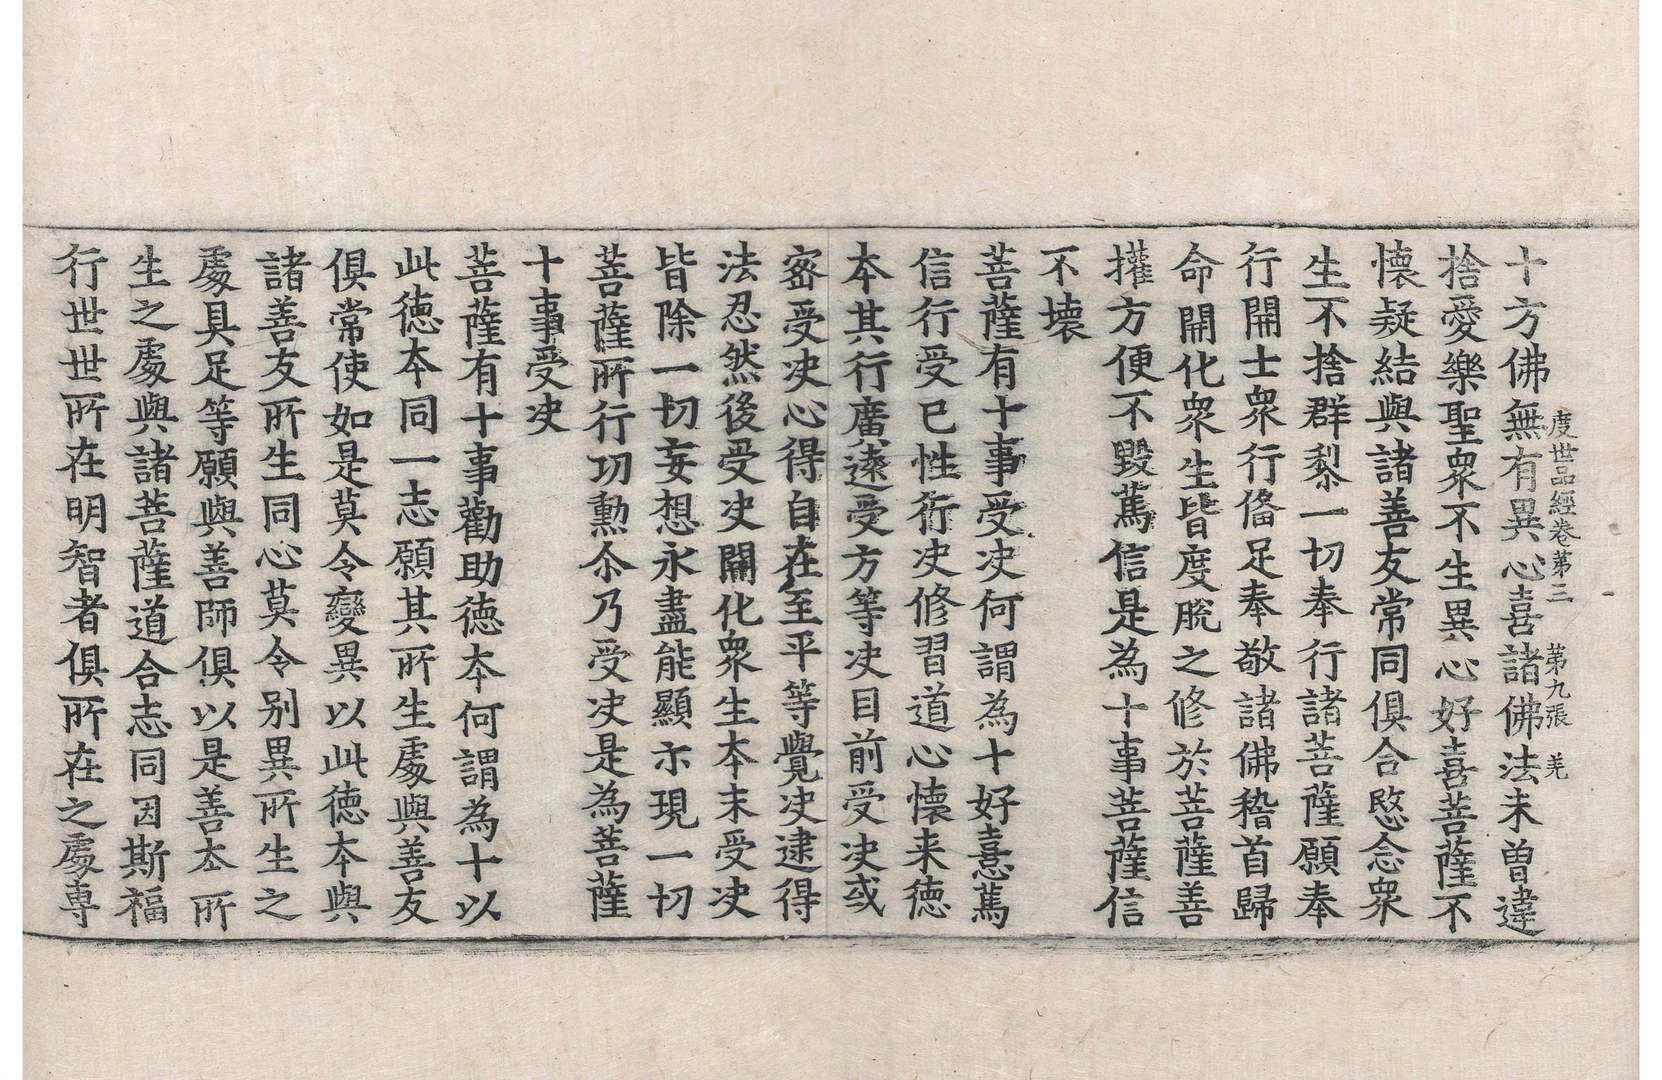 度世品經卷第三　第九張　羌
十方佛無有異心喜諸佛法未曾違
捨愛樂聖衆不生異心好喜菩薩不
懷疑結與諸善友常同俱合愍念衆
生不捨群黎一切奉行諸菩薩願奉
行開士衆行俻足奉敬諸佛稽首歸
命開化衆生皆度脫之修於菩薩善
攉方便不毀篤信是為十事菩薩信
不壞
菩薩有十事受决何謂為十好憙篤
信行受已性行决修習道心懷来德
本其行廣遠受方等决目前受决或
密受决心得自在至平等覺决逮得
法忍然後受决開化衆生本末受决
皆除一切妄想永盡能顯示現一切
菩薩所行功勳尒乃受决是為菩薩
十事受决
菩薩有十事勸助德本何謂為十以
此德本同一志願其所生處與善友
俱常使如是莫令變異以此德本與
諸善友所生同心莫令别異所生之
處具足等願與善師俱以是善本所
生之處與諸菩薩道合志同因斯福
行世世所在明智者俱所在之處専